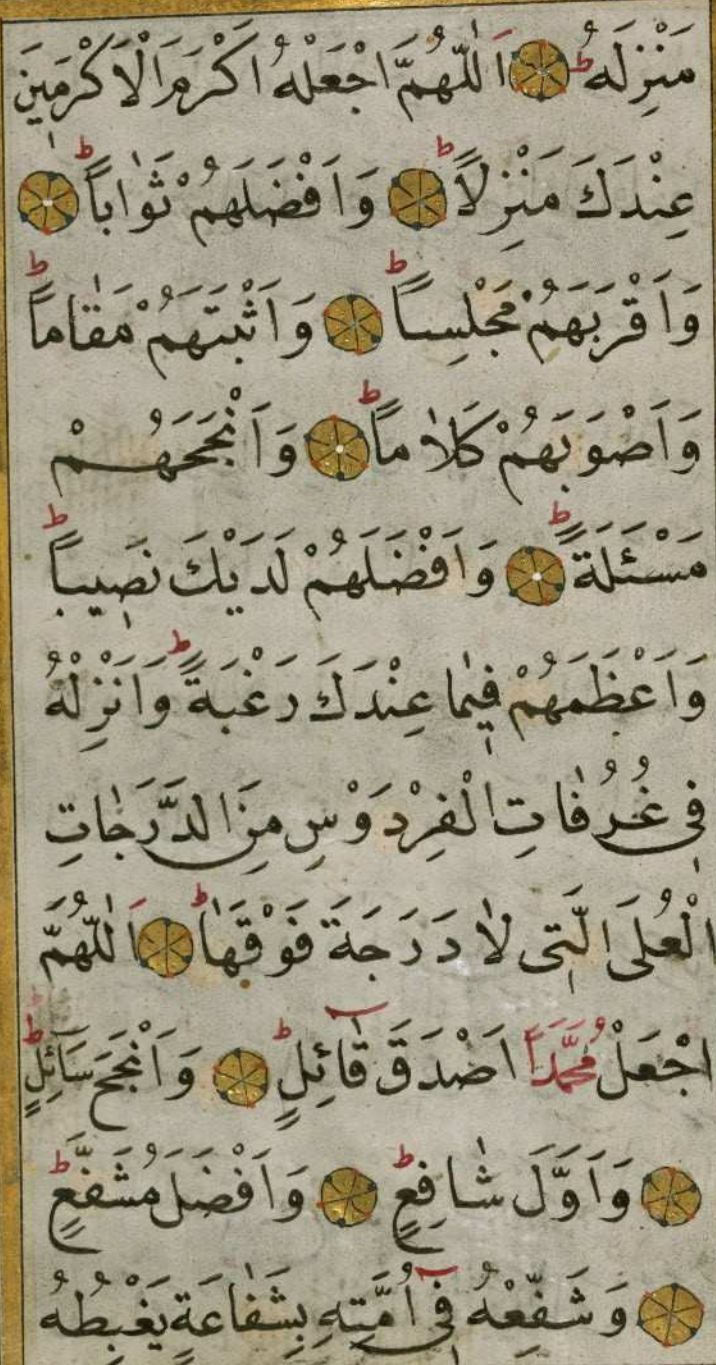 مَنْزِلَهُ ط اَللّٰهُمَّ اجْعَلْهُ اَكْرَمَ الْاَكْرَمِينَ
عِنْدَكَ مَنْزِلاً ط وَاَفْضَلَهُمْ ثَوٰاباً ط
وَاَقْرَبَهُمْ مَجْلِساً ط وَاَثْبَتَهُمْ مَقٰاماً ط
وَاَصْوَبَهُمْ كَلاٰماً ط وَاَنْجَحَهُمْ
مَسْئَلَةً ط وَاَفْضَلَهُمْ لَدَيْكَ نَصِيباً ط
وَاَعْظَمَهُمْ فِيمٰا عِنْدَكَ رَغْبَةً ط وَاَنْزِلْهُ
فِى غُرُفٰاتِ الْفِرْدَوْسِ مِنَ الدَّرَجٰاتِ
الْعُلَى الَّتِى لاٰ دَرَجَةَ فَوْقَهٰا ط اَللّٰهُمَّ
اجْعَلْ مُحَمَّداً اَصْدَقَ قَٓائِلٍ ط وَاَنْجَحَ سَٓائِلٍ ط
وَاَوَّلَ شٰافِعٍ ط وَاَفْضَلَ مُشَفَّعٍ ط
وَشَفِّعْهُ فِٓى اُمَّتِهِ بِشَفٰاعَةٍ يَغْبِطُهُ